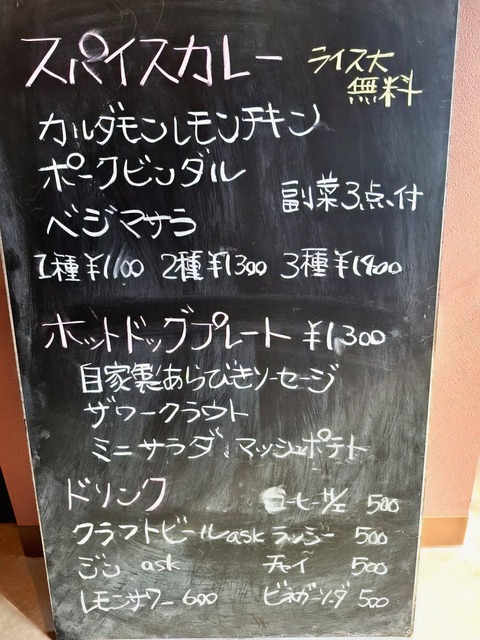 スパイスカレー ライス大
無料
カルダモンレモンチキン
ポークビンダル
副菜3点付
ベジマサラ
1種¥1100 2種¥1300 3種¥1400
ホットドッグプレート ¥1300
自家製あらびきソーセージ
ザワークラウト
ミニサラダ、マッシュポテト
ドリンク コーヒー 500
クラフトビール ask ラッシー 500
ジン ask チャイ 500
レモンサワー 600 ビネガーソーダ 500